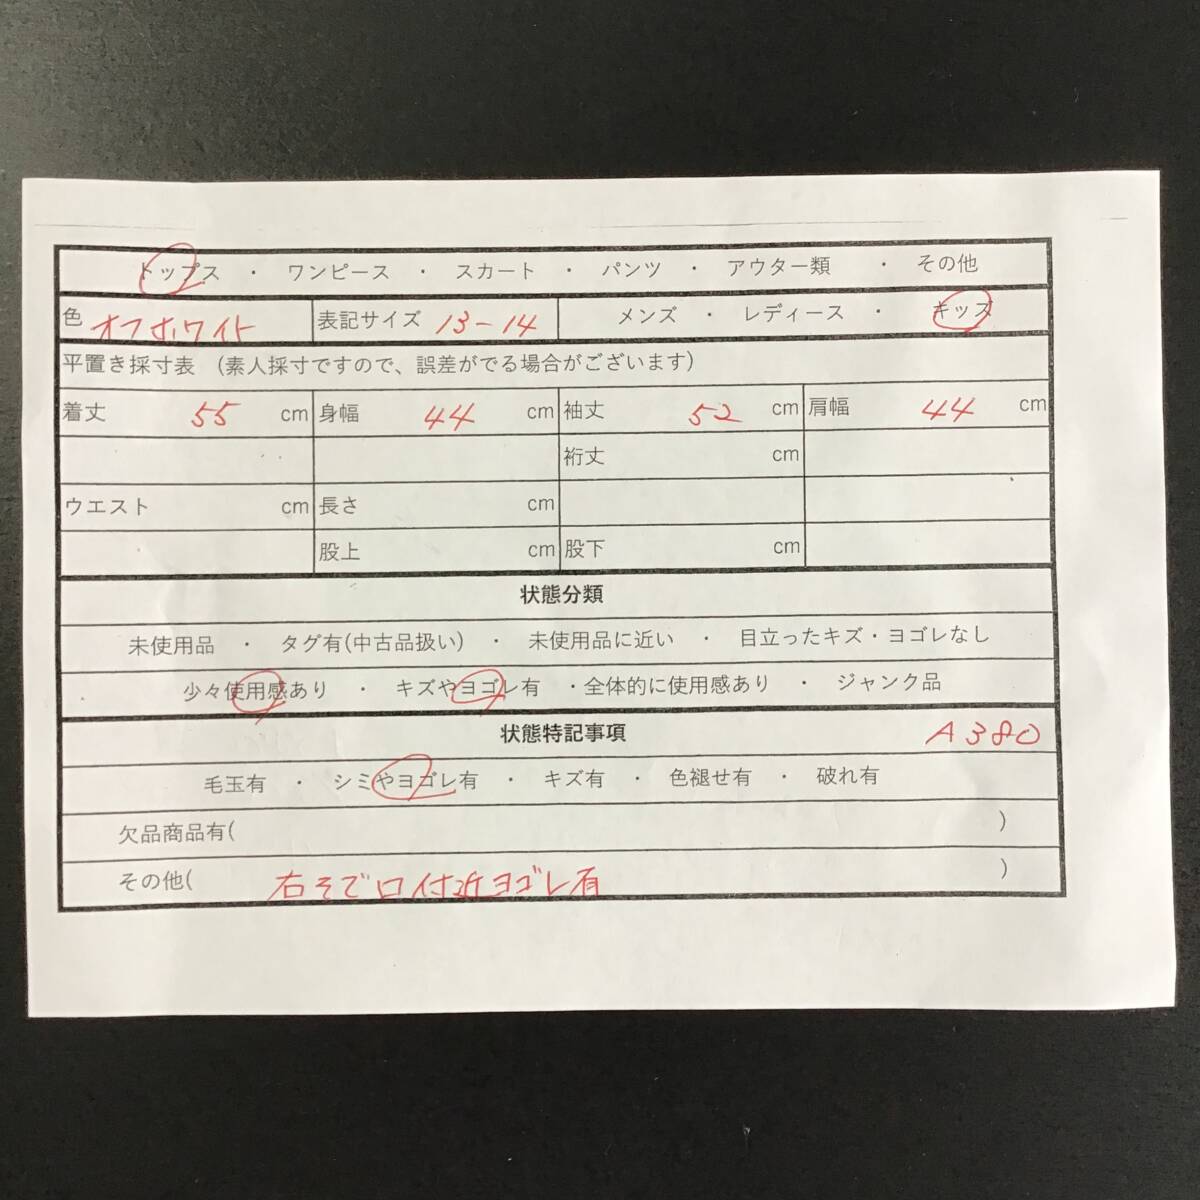 トップス ・ ワンピース ・ スカート ・ パンツ ・ アウター類 ・ その他
色 オフホワイト 表記サイズ 13-14 メンズ ・ レディース ・ キッズ
平置き採寸表 (素人採寸ですので、誤差がでる場合がございます)
着丈 55 cm 身幅 44 cm 袖丈 52 cm 肩幅 44 cm
裄丈 cm
ウエスト cm 長さ cm
股上 cm 股下 cm
状態分類
未使用品 ・ タグ有(中古品扱い) ・ 未使用品に近い ・ 目立ったキズ・ヨゴレなし
少々使用感あり ・ キズやヨゴレ有 ・全体的に使用感あり ・ ジャンク品
状態特記事項 A380
毛玉有 ・ シミやヨゴレ有 ・ キズ有 ・ 色褪せ有 ・ 破れ有
欠品商品有( )
その他( 右そで口付近ヨゴレ有 )